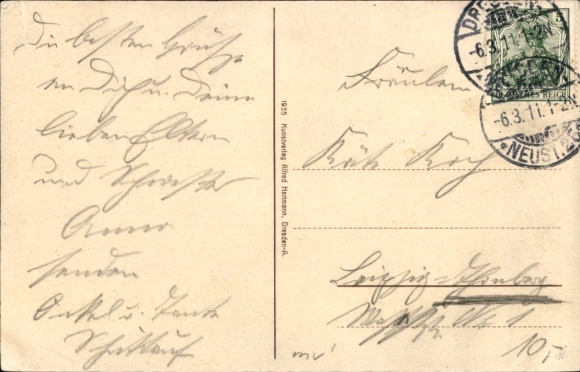 Die besten Grüße
an Dich u. Deine
lieben Eltern
und Schwester
Anna
senden
Onkel u. Tante
1935 Kunstverlag Alfred Hartmann, Dresden-A.
DRESDEN
-6.3.11.1-2N
REICH
-6.3.11.1-2N
*NEUST.
Fräulein
Käte Koch
Leipzig
No 1
10,-